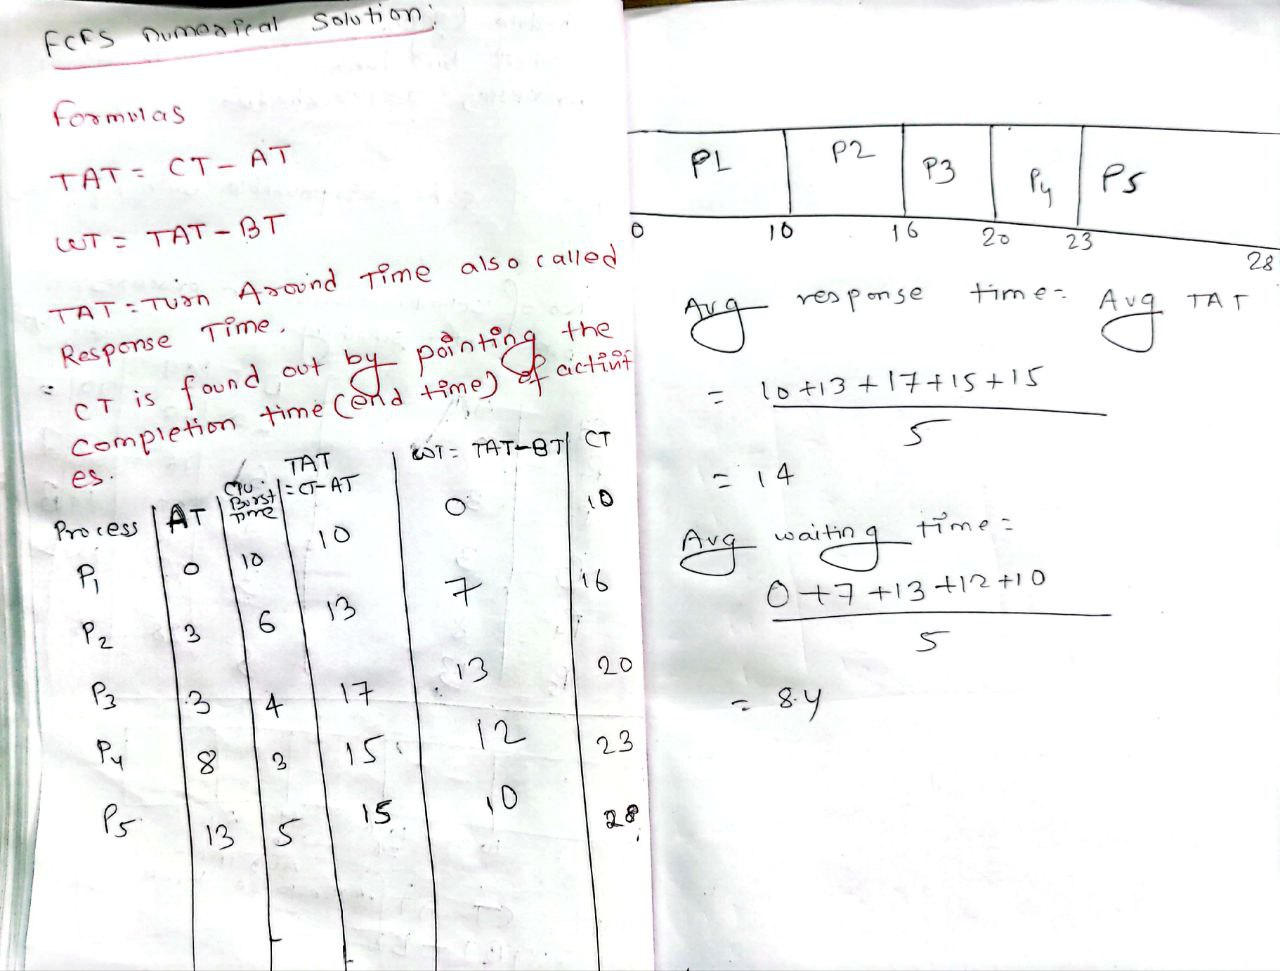 FCFS Numerical Solution:
Formulas
TAT = CT - AT
WT = TAT - BT
TAT = Turn Around Time also called
Response Time.
CT is found out by pointing the
completion time (end time) of activit
es.
Process | AT | CPU Burst time | TAT = CT-AT | WT = TAT-BT | CT
P1 0 10 10 0 10
P2 3 6 13 7 16
P3 3 4 17 13 20
P4 8 3 15 12 23
P5 13 5 15 10 28
P1 P2 P3 P4 P5
0 10 16 20 23 28
Avg response time = Avg TAT
= 10+13+17+15+15
5
= 14
Avg waiting time =
0+7+13+12+10
5
= 8.4